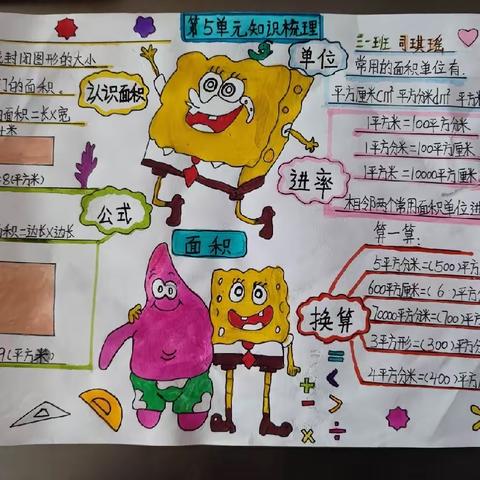 第5单元知识梳理
三一班 司琪瑶
封闭图形的大小
门的面积.
认识面积
面积=长×宽
=8(平方米)
公式
面积=边长×边长
9(平方米)
面积
单位
常用的面积单位有:
平方厘米cm² 平方分米dm² 平方米
进率
1平方米=100平方分米
1平方分米=100平方厘米
1平方米=10000平方厘米
相邻两个常用面积单位进
算一算:
换算
5平方分米=(500)平方
600平方厘米=(6)平方
70000平方分米=(700)平方
3平方形=(300)平方
4平方分米=(400)平方
= < + - > × ÷